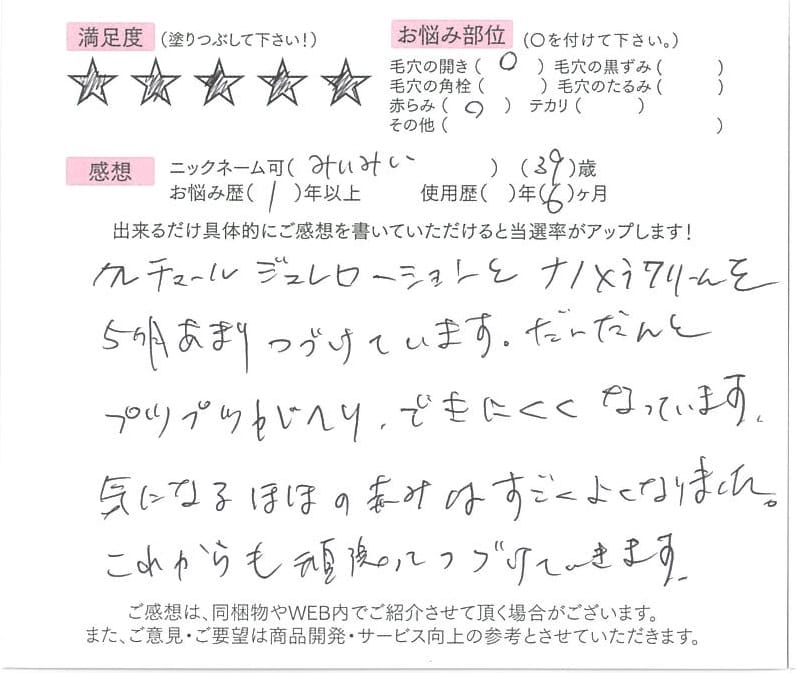 満足度 （塗りつぶして下さい！）
お悩み部位 （〇を付けて下さい。）
毛穴の開き（ 〇 ） 毛穴の黒ずみ（ ）
毛穴の角栓（ ） 毛穴のたるみ（ ）
赤らみ（ 〇 ） テカリ（ ）
その他（ ）
感想 ニックネーム可（ みいみい ） （39）歳
お悩み歴（ 1 ）年以上 使用歴（ ）年（6）ヶ月
出来るだけ具体的にご感想を書いていただけると当選率がアップします！
ジュレローションと クリームを
5ヶ月あまりつづけています。だんだんと
プツプツもへり、できにくくなっています。
気になるほほの赤みはすごくよくなりました。
これからも頑張ってつづけていきます。
ご感想は、同梱物やWEB内でご紹介させて頂く場合がございます。
また、ご意見・ご要望は商品開発・サービス向上の参考とさせていただきます。